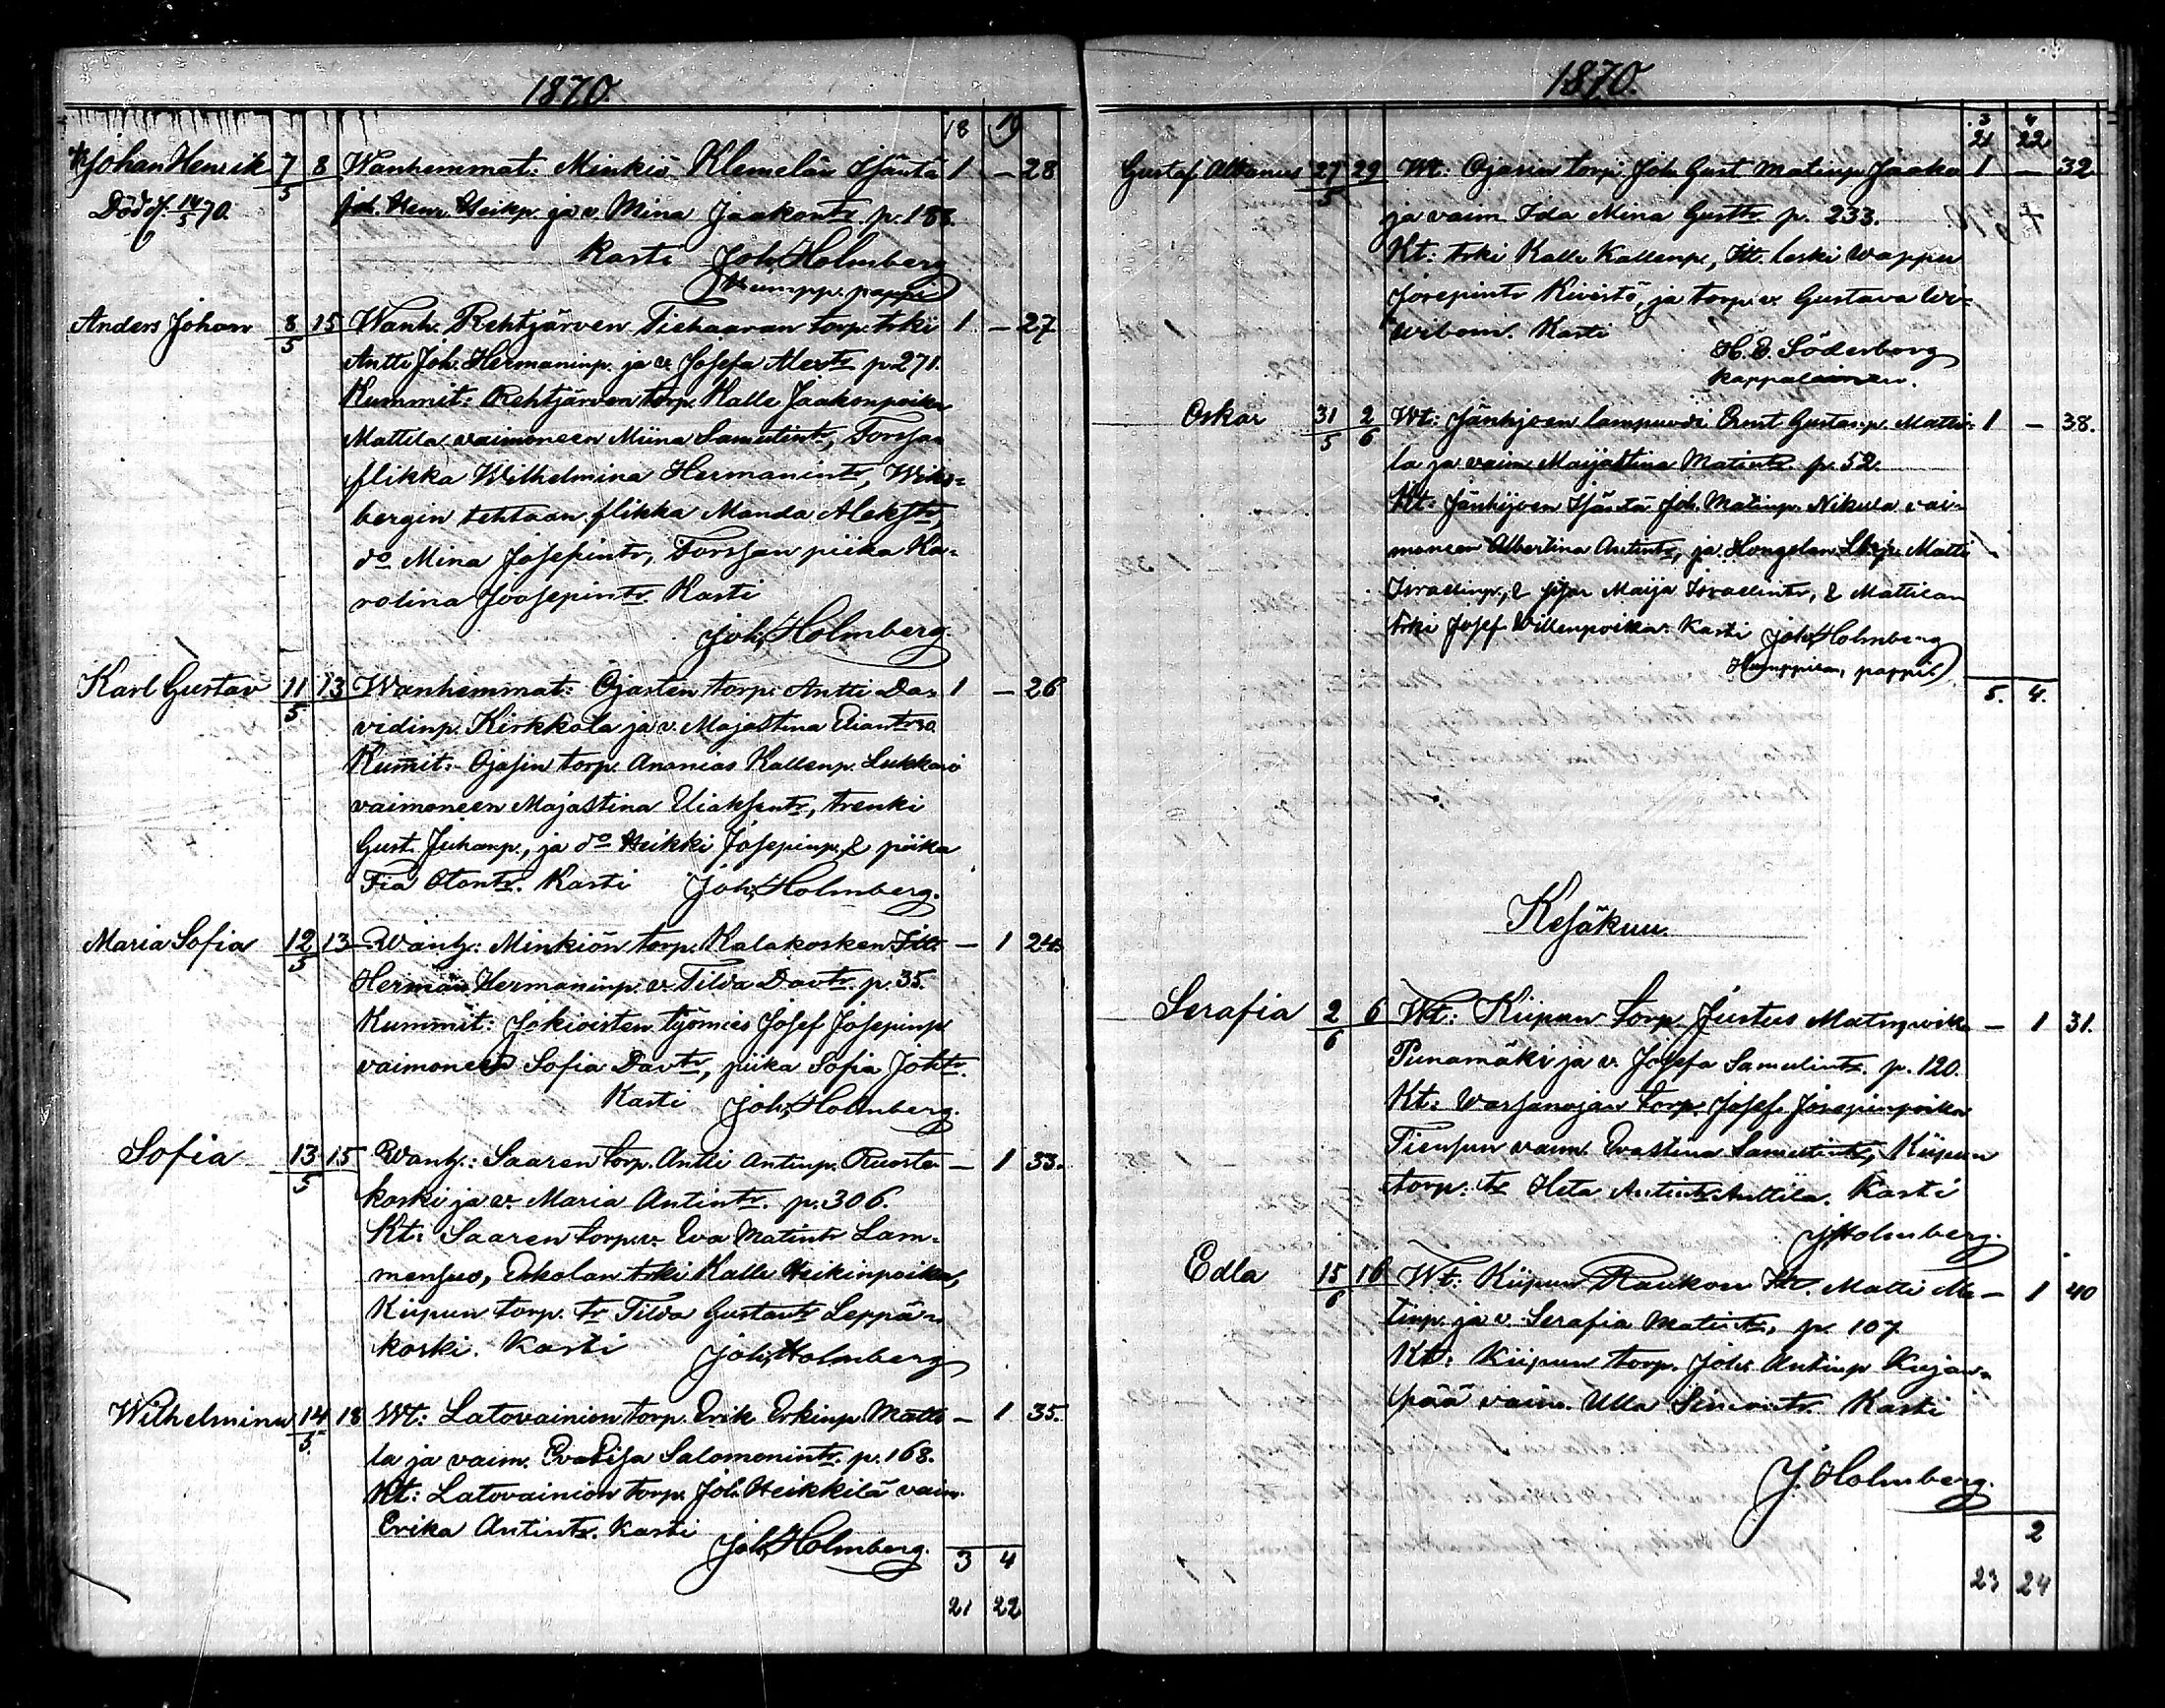 1870.
18 19
Johan Henrik 7/5 8 Wanhemmat: Minkiö Klemelän Isäntä 1 – 28
Död d. 14/5 70. Joh. Henr. Heikp. ja v. Mina Jaakontr. p. 188.
Kasti Joh. Holmberg
Humpp. pappi
Anders Johan 8/5 15 Wanh. Rehtjärven Tiehaaran torp. trki 1 – 27
Antti Joh. Hermaninp. ja v. Josefa Alextr p. 271.
Kummit: Rehtjärven torp. Kalle Jaakonpoika
Mattila vaimoneen Miina Samulintr, Forssan
flikka Wilhelmina Hermanintr, Wiks-
bergin tehtaan flikka Manda Alekstr,
do Mina Josepintr, Forssan piika Ka-
rolina Joosepintr. Kasti
Joh. Holmberg
Karl Gustav 11/5 13 Wanhemmat: Ojasten torp. Antti Da- 1 – 26
vidinp. Kirkkola ja v. Majastina Eliantr 30.
Kumit: Ojasin torp. Ananias Kallenp. Lukkarö
vaimoneen Majastina Eliaksentr, trenki
Gust. Juhanp., ja do Heikki Josepinp. & piika
Fia Otontr. Kasti Joh. Holmberg.
Maria Sofia 12/5 13 Wanh.: Minkiön torp. Kalakosken Itt. – 1 24.
Herman Hermaninp. v. Tilda Davtr. p. 35.
Kummit: Jokioisten työmies Josef Josepinp
vaimoneen Sofia Davtr, piika Sofia Johtr.
Kasti Joh. Holmberg.
Sofia 13/5 15 Wanh.: Saaren torp. Antti Antinp. Ruosta- – 1 33.
koski ja v. Maria Antintr. p. 306.
Kt: Saaren torp.v. Eva Matintr Lam-
mensuo, Erkolan trki Kalle Heikinpoika,
Kiipun torp. tr Tilda Gustavtr Leppä-
koski. Kasti Joh. Holmberg
Wilhelmina 14/5 18 Wt: Latovainion torp. Erik Erkinp. Matti- – 1 35.
la ja vaim. Eva Lisa Salomonintr. p. 168.
Kt: Latovainion torp. Joh. Heikkilä vaim.
Erika Antintr. Kasti
Joh. Holmberg. 3 4
21 22
1870.
3 4
21 22
Gustaf Albanus 27/5 29 Wt: Ojasin torp. Joh. Gust. Matinp. Jaako 1 – 32
ja vaim. Ida Mina Gusttr. p. 233.
Kt: trki Kalle Kallenp., Itt. leski Wappu
Josepintr Kivistö, ja torp. v. Gustava
Kasti
H. E. Söderborg
Kappalainen.
Oskar 31/5 2/6 Wt: Jänhijoen lampuodi Ernst Gustavp. Matti- 1 – 38.
la ja vaim. Maijastina Matintr. p. 52.
Kt: Jänhijoen Isäntä Joh. Matinp. Nikula vai-
moneen Albertina Antintr, ja Hongelan Matti
Israelinp., & Maija Israelintr, & Mattilan
trki Josef Willenpoika. Kasti Joh. Holmberg
Humppilan pappi
5. 4.
Kesäkuu.
Serafia 2/6 6 Wt: Kiipun torp. Justus Matinpoika – 1 31.
Punamäki ja v. Josefa Samulintr. p. 120.
Kt: Warsanojan torp. Josef Josepinpoika
Tiensuun vaim. Evastina Samulintr, Kiipun
torp. tr Heta Antintr Anttila. Kasti
J. Holmberg.
Edla 15/6 16 Wt: Kiipun Raukon Itt. Matti Ma- – 1 40
tinp. ja v. Serafia Matintr, p. 107
Kt: Kiipun torp. Joh. Antinp Kujan-
pää vaim. Ulla Simontr. Kasti
J. Holmberg.
2
23 24